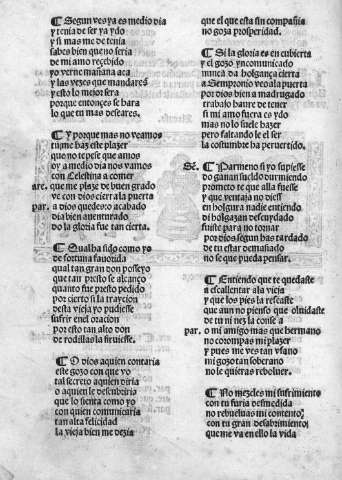 ¶ Segun ves ya es medio dia
y tenia de ser ya ydo
y si mas me detenia
sabes bien que seria
de mi amo reçebido
yo verne mañana aca
y las vezes que mandares
y esto lo mejor sera
porque entonçes se hara
lo que tu mas desseares.
¶ Y porque mas no veamos
tu me haz este plazer
que no te pese que amos
oy a medio dia nos vamos
con Celestina a comer
are. que me plaze de buen grado
ve con dios cierra la puerta
par. a dios quedo yo acabado
dia bien auenturado
do la gloria fue tan cierta.
¶ Qual ha sido como yo
de fortuna fauorida
qual tan gran don posseyo
que tan presto se alcanço
quanto fue presto pedido
por cierto si la trayçion
desta vieja yo pudiesse
sufrir en el oracion
por esto tan alto don
de rodillas la siruiesse.
¶ O dios a quien contaria
este gozo con que vo
tal secreto a quien diria
o a quien le descubriria
que lo sienta como yo
con quien comunicaria
tan alta felicidad
la vieja bien me dezia
que el que esta sin compañia
no goza prosperidad.
¶ Si la gloria es encubierta
y el gozo yncomunicado
nunca da holgança cierta
a Sempronio veo a la puerta
por dios bien a madrugado
trabajo haure de tener
si mi amo fuera es ydo
mas no lo suele hazer
pero faltando le el ser
la costumbre ha peruertido.
Sē. ¶ Parmeno si yo supiesse
do ganan sueldo durmiendo
prometo te que alla fuesse
y que ventaja no diesse
en holgura nadie entiendo
di holgazan descuydado
fuiste para no tornar
por dios segun has tardado
de tu estar demasiado
no se que pueda pensar.
¶ Entiendo que te quedaste
a escallentar a la vieja
y que los pies la rascaste
que aun no pienso que oluidaste
de tu niñez la conseja
par. o mi amigo mas que hermano
no corrompas mi plazer
y pues me ves tan vfano
mi gozo tan soberano
no le quieras reboluer.
¶ No mezcles mi sufrimiento
con tu furia desmedida
no rebueluas mi contento
con tu gran desabrimiento
que me va en ello la vida